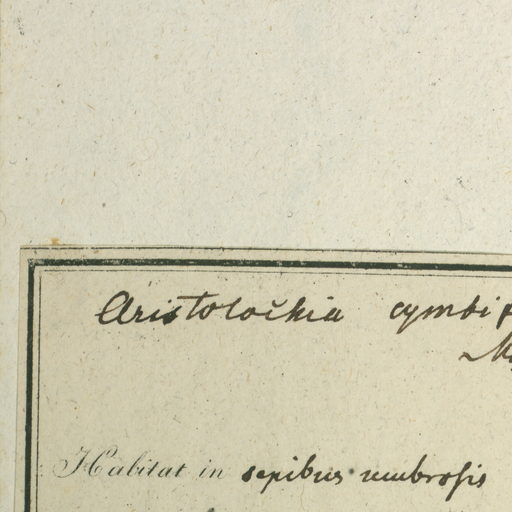 Aristolochia cymbif
Ma
Habitat in sepibus umbrosis